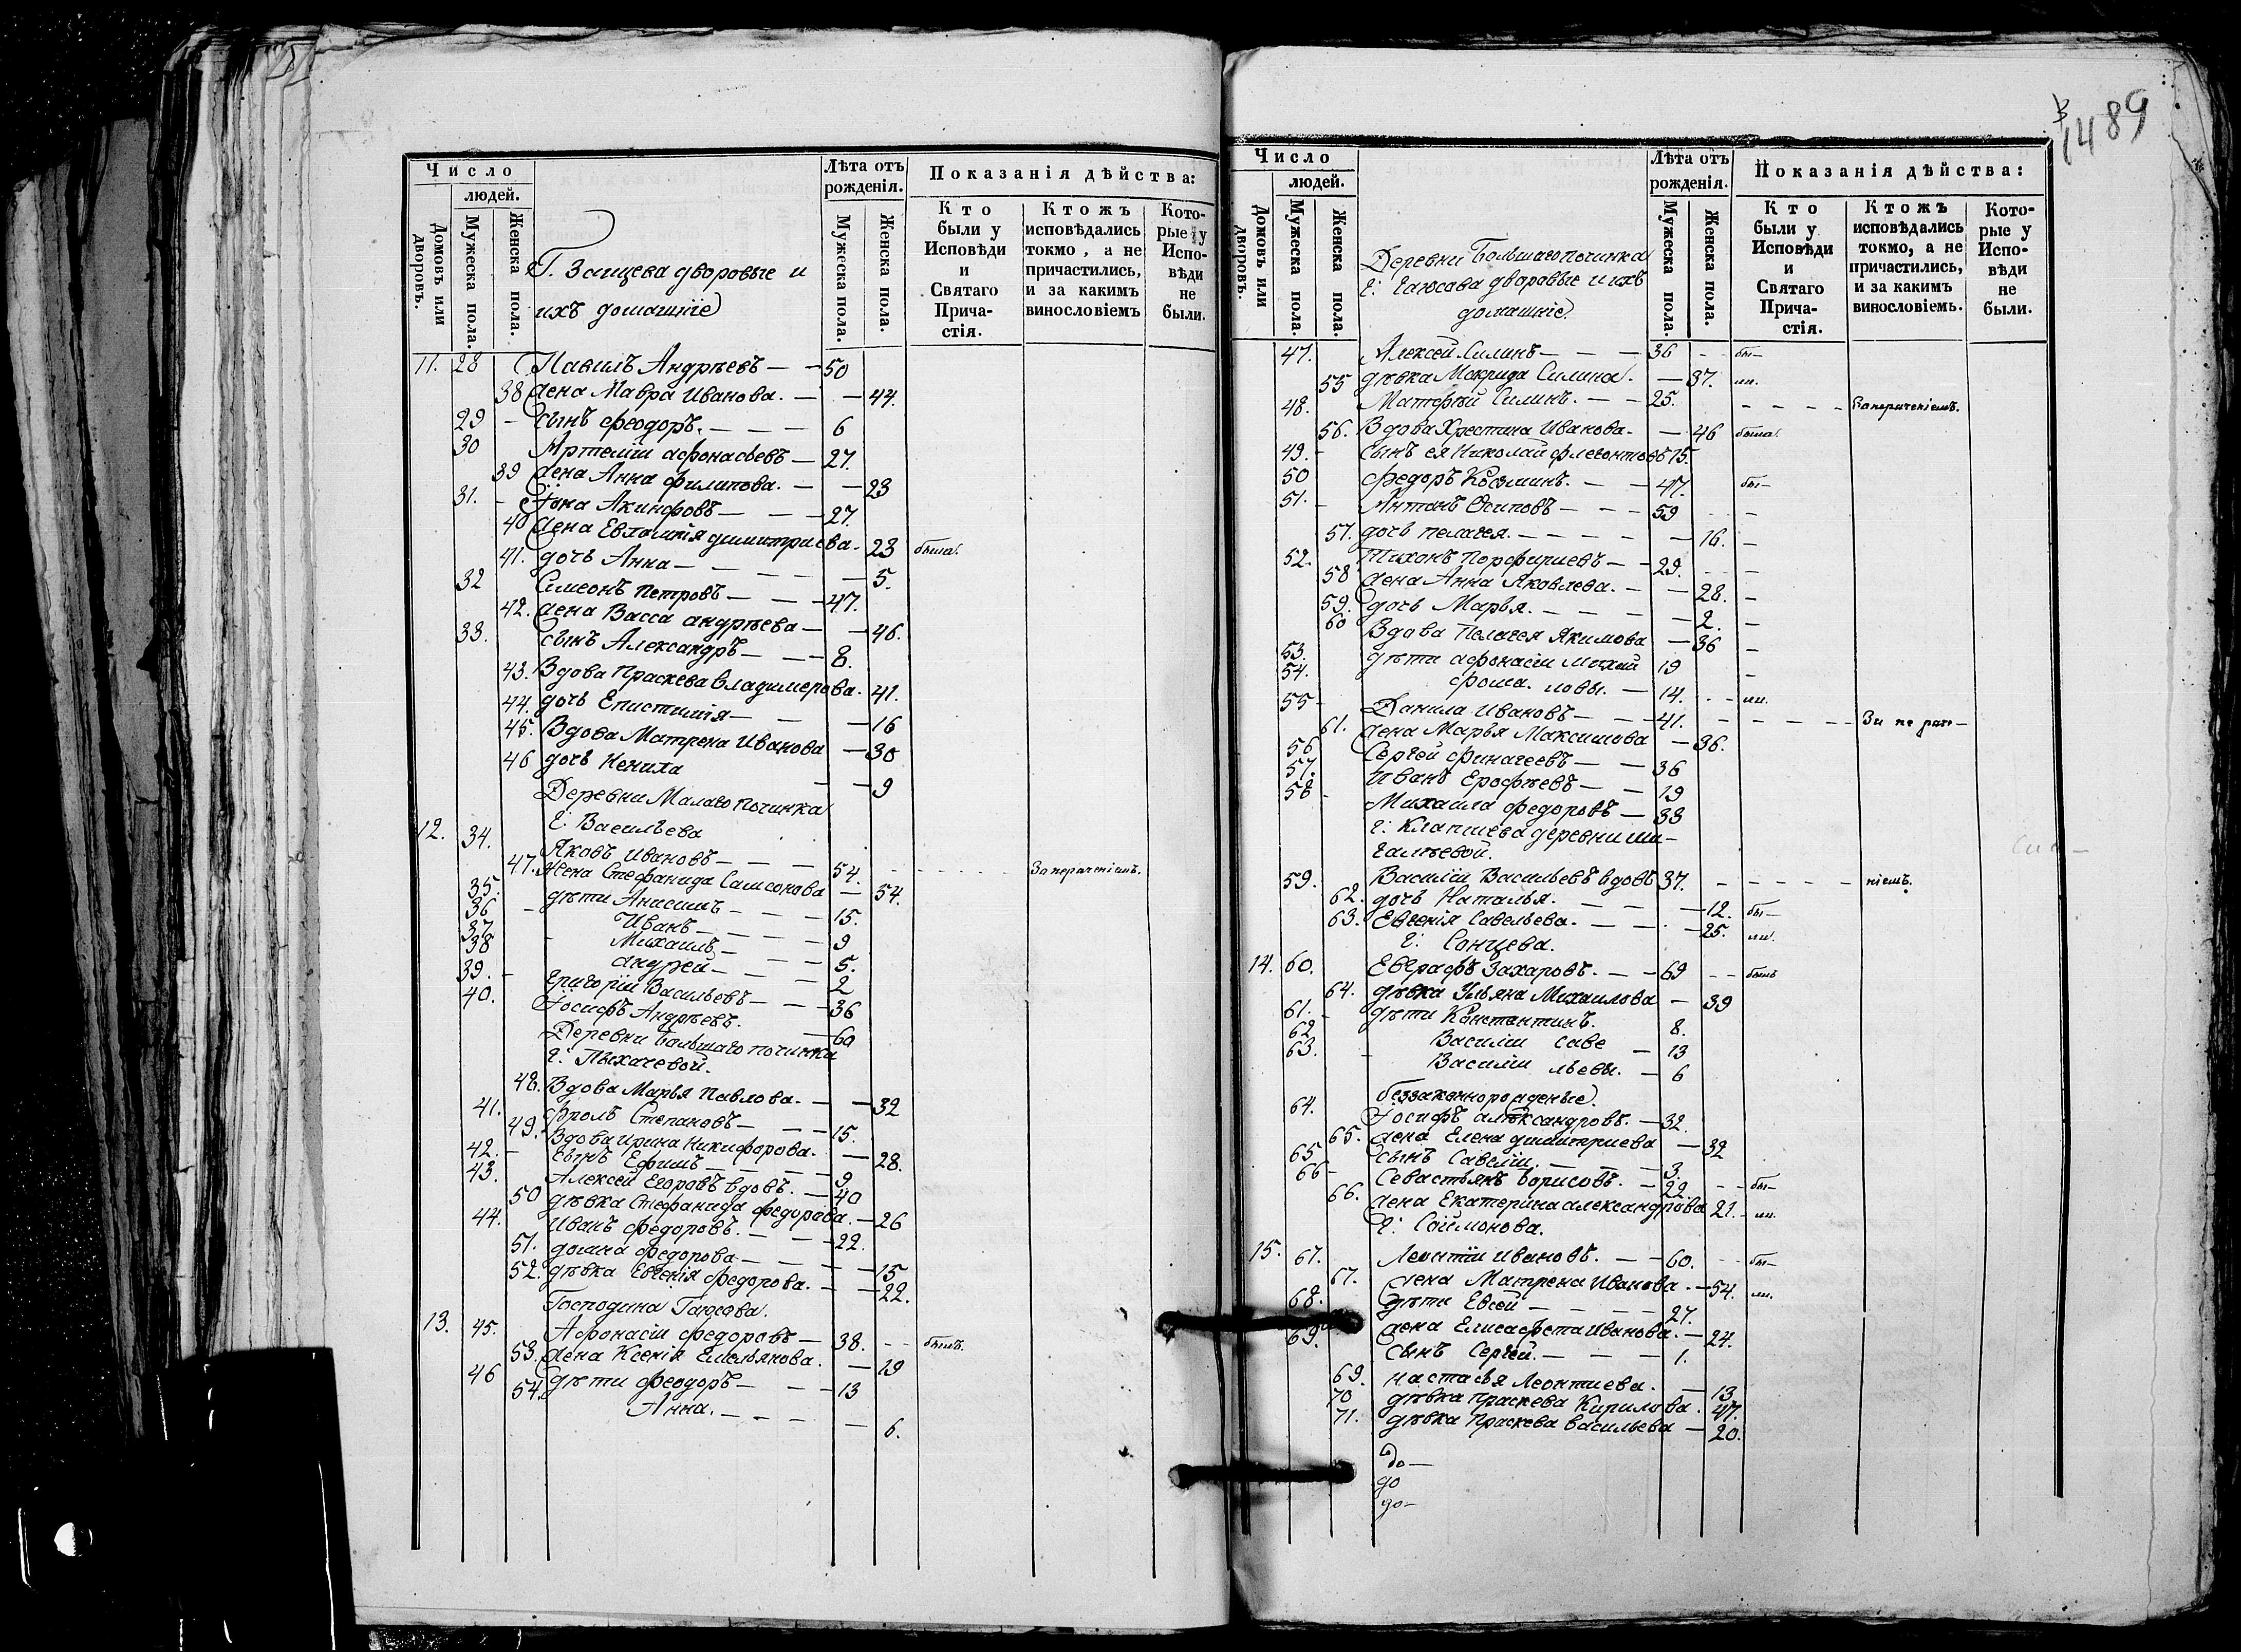 1489
Число
людей.
Домовъ или дворовъ.
Мужеска пола.
Женска пола.
Г. Заицева дворовые и
ихъ домашніе
Лѣта отъ рожденія.
Мужеска пола.
Женска пола.
Показанія дѣйства:
Кто были у Исповѣди и Святаго Причастія.
Ктожъ исповѣдались токмо, а не причастились, и за какимъ винословіемъ
Которые у Исповѣди не были.
11. 28 Павилъ Андрѣевъ — — 50
38 жена Мавра Иванова. — — 44.
29 — сынъ феодоръ. — — — 6
30 Артемїи афонасьевъ — 27.
39 жена Анна филипова. — — 23
31. — Іона Акинфовъ — — — 27.
40 жена Евдокія димитриева. 23 была.
41. дочь Анна — — — — 5.
32 Симеонъ Петровъ — — — 47.
42. жена Васса андрѣева — — 46.
33. сынъ Александръ — — — 8.
43. Вдова Праскева владимерова. 41.
44. дочь Епистимія — — — 16
45. Вдова Матрена Иванова — 30
46 дочь — — 9
Деревни Малаго починка
г: Васильева
12. 34. Яковъ Ивановъ — — — 54.
47. жена Стефанида Самсонова — 54. Занерачениемъ.
35. дѣти Анисимъ — — — 15.
36 — Иванъ — — — — 9
37 Михаилъ — — — 5.
38 андреи — — — 2
39. — Григорїи Васильевъ — — — 36
40. Іосифъ Андрѣевъ. — 60
Деревни большаго починка
г: Пыхачевой.
48. Вдова Марья Павлова. — — 32
41. фролъ Степановъ — — — 15.
49. Вдова Ирина Никифорова. — 28.
42. — сынъ Ефимъ — — — — 9
43. Алексеи Егоровъ вдовъ. — 40
50 дѣвка Стефанида федорова. — 26
44. Иванъ федоровъ. — — — 22.
51. домна федорова — — — — 15
52. дѣвка Евгенія федорова. — — 22.
Господина Гаюсова.
13. 45. Афонасїи федоровъ — 38. — — былъ.
53. жена Ксенія Емельянова. — 19
46 дѣти феодоръ — — — 13
54. Анна. — — — — 6.
Число
людей.
Домовъ или дворовъ.
Мужеска пола.
Женска пола.
Деревни Большаго починка
г: Гаюсова дворовые и ихъ
домашніе.
Лѣта отъ рожденія.
Мужеска пола.
Женска пола.
Показанія дѣйства:
Кто были у Исповѣди и Святаго Причастія.
Ктожъ исповѣдались токмо, а не причастились, и за какимъ винословіемъ.
Которые у Исповѣди не были.
47. Алексей Силинъ — — — 36 — — бы—
55 дѣвка Макрида Силина. — 37. ли.
48. Матфѣй Силинъ. — — 25. — — — — Занерачениемъ.
56. Вдова Христина Иванова — — 46 была.
49. — сынъ ея Николай флегонтовъ 15.
50 федоръ Козминъ. — — 47. бы—
51. — Антонъ Осиповъ — — — 59 — — —
57. дочь пелагея. — — — — — 16. —
52. Тихонъ Порфириевъ — — 29. — — —
58 жена Анна Яковлева. — — 28. —
59. дочь Марья. — — — — 2. —
60 Вдова Пелагея Якимова — 36 —
53. дѣти афонасїи Михай 19 —
54. фома. ловы. — 14. — — ли.
55 — Данила Ивановъ — — — 41. — — — — — За нерач—
61. жена Марья Максимова — 36.
56 Сергей финагеевъ — — 36
57. Иванъ Ерофѣевъ — — 19
58 — Михаила федоровъ — 33
59. Василїи Васильевъ вдовъ 37. — — — — — ніемъ.
62. дочь Наталья. — — — 12. бы—
63. Евгенія Савельева. — — — 25. ли.
г: Сонцева.
14. 60. Евграфъ Захаровъ. — — 69 — — былъ
64. дѣвка Ульяна Михаилова — 39
61. — дѣти Константинъ. 8.
62. Василїи саве — 13
63. — Василїи льевы. — 6
беззаконнорожденые.
64. Іосифъ александровъ. — 32.
65. жена Елена димитриева — 32
65 сынъ Савелїи. — — — 3.
66 — Севастьянъ борисовъ. — 22. — — бы—
66. жена Екатерина александрова 21. — ли.
г: Соймонова.
15. 67. Леонтїи Ивановъ. — — 60. — — бы—
67. жена Матрена Иванова. — 54. ли.
68. дѣти Евсей — — — — 27.
жена Елисафета Иванова. — 24.
69. сынъ Сергей. — — — 1.
69. настасья Леонтиева. — 13.
70 дѣвка праскева Кирилова. 47.
71. дѣвка Праскева васильева — 20.
до—
до
до—